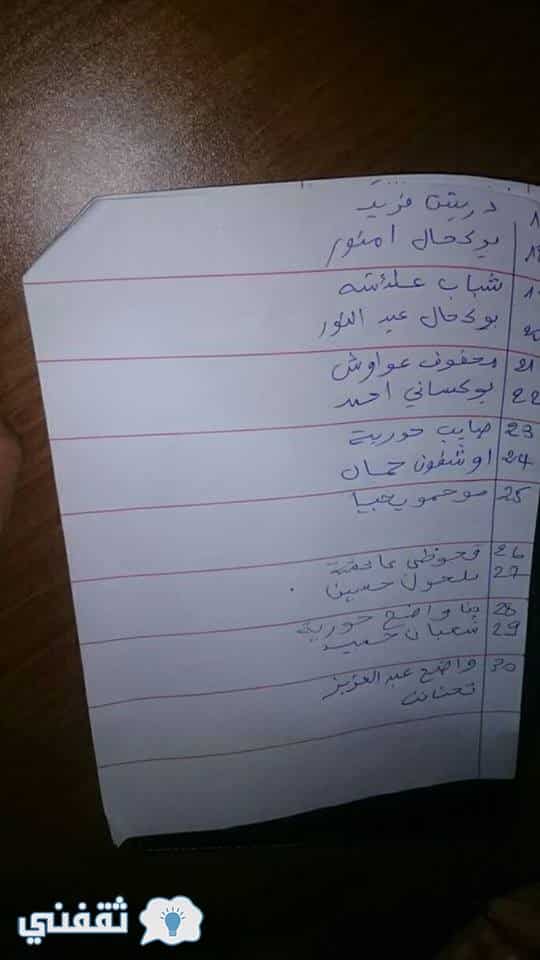 فريد
بوكحال امنور
شباب عائشه
بوكحال عبد النور
محفوف عواوش
بوكساني احمد
23 صايب حورية
24 اوشفون حمان
25 موحمو يحيا
26
27 بلحول حسين
28 بنا واضح حورية
29 شعبان حميد
30 واضح عبد العزيز
ثقفني